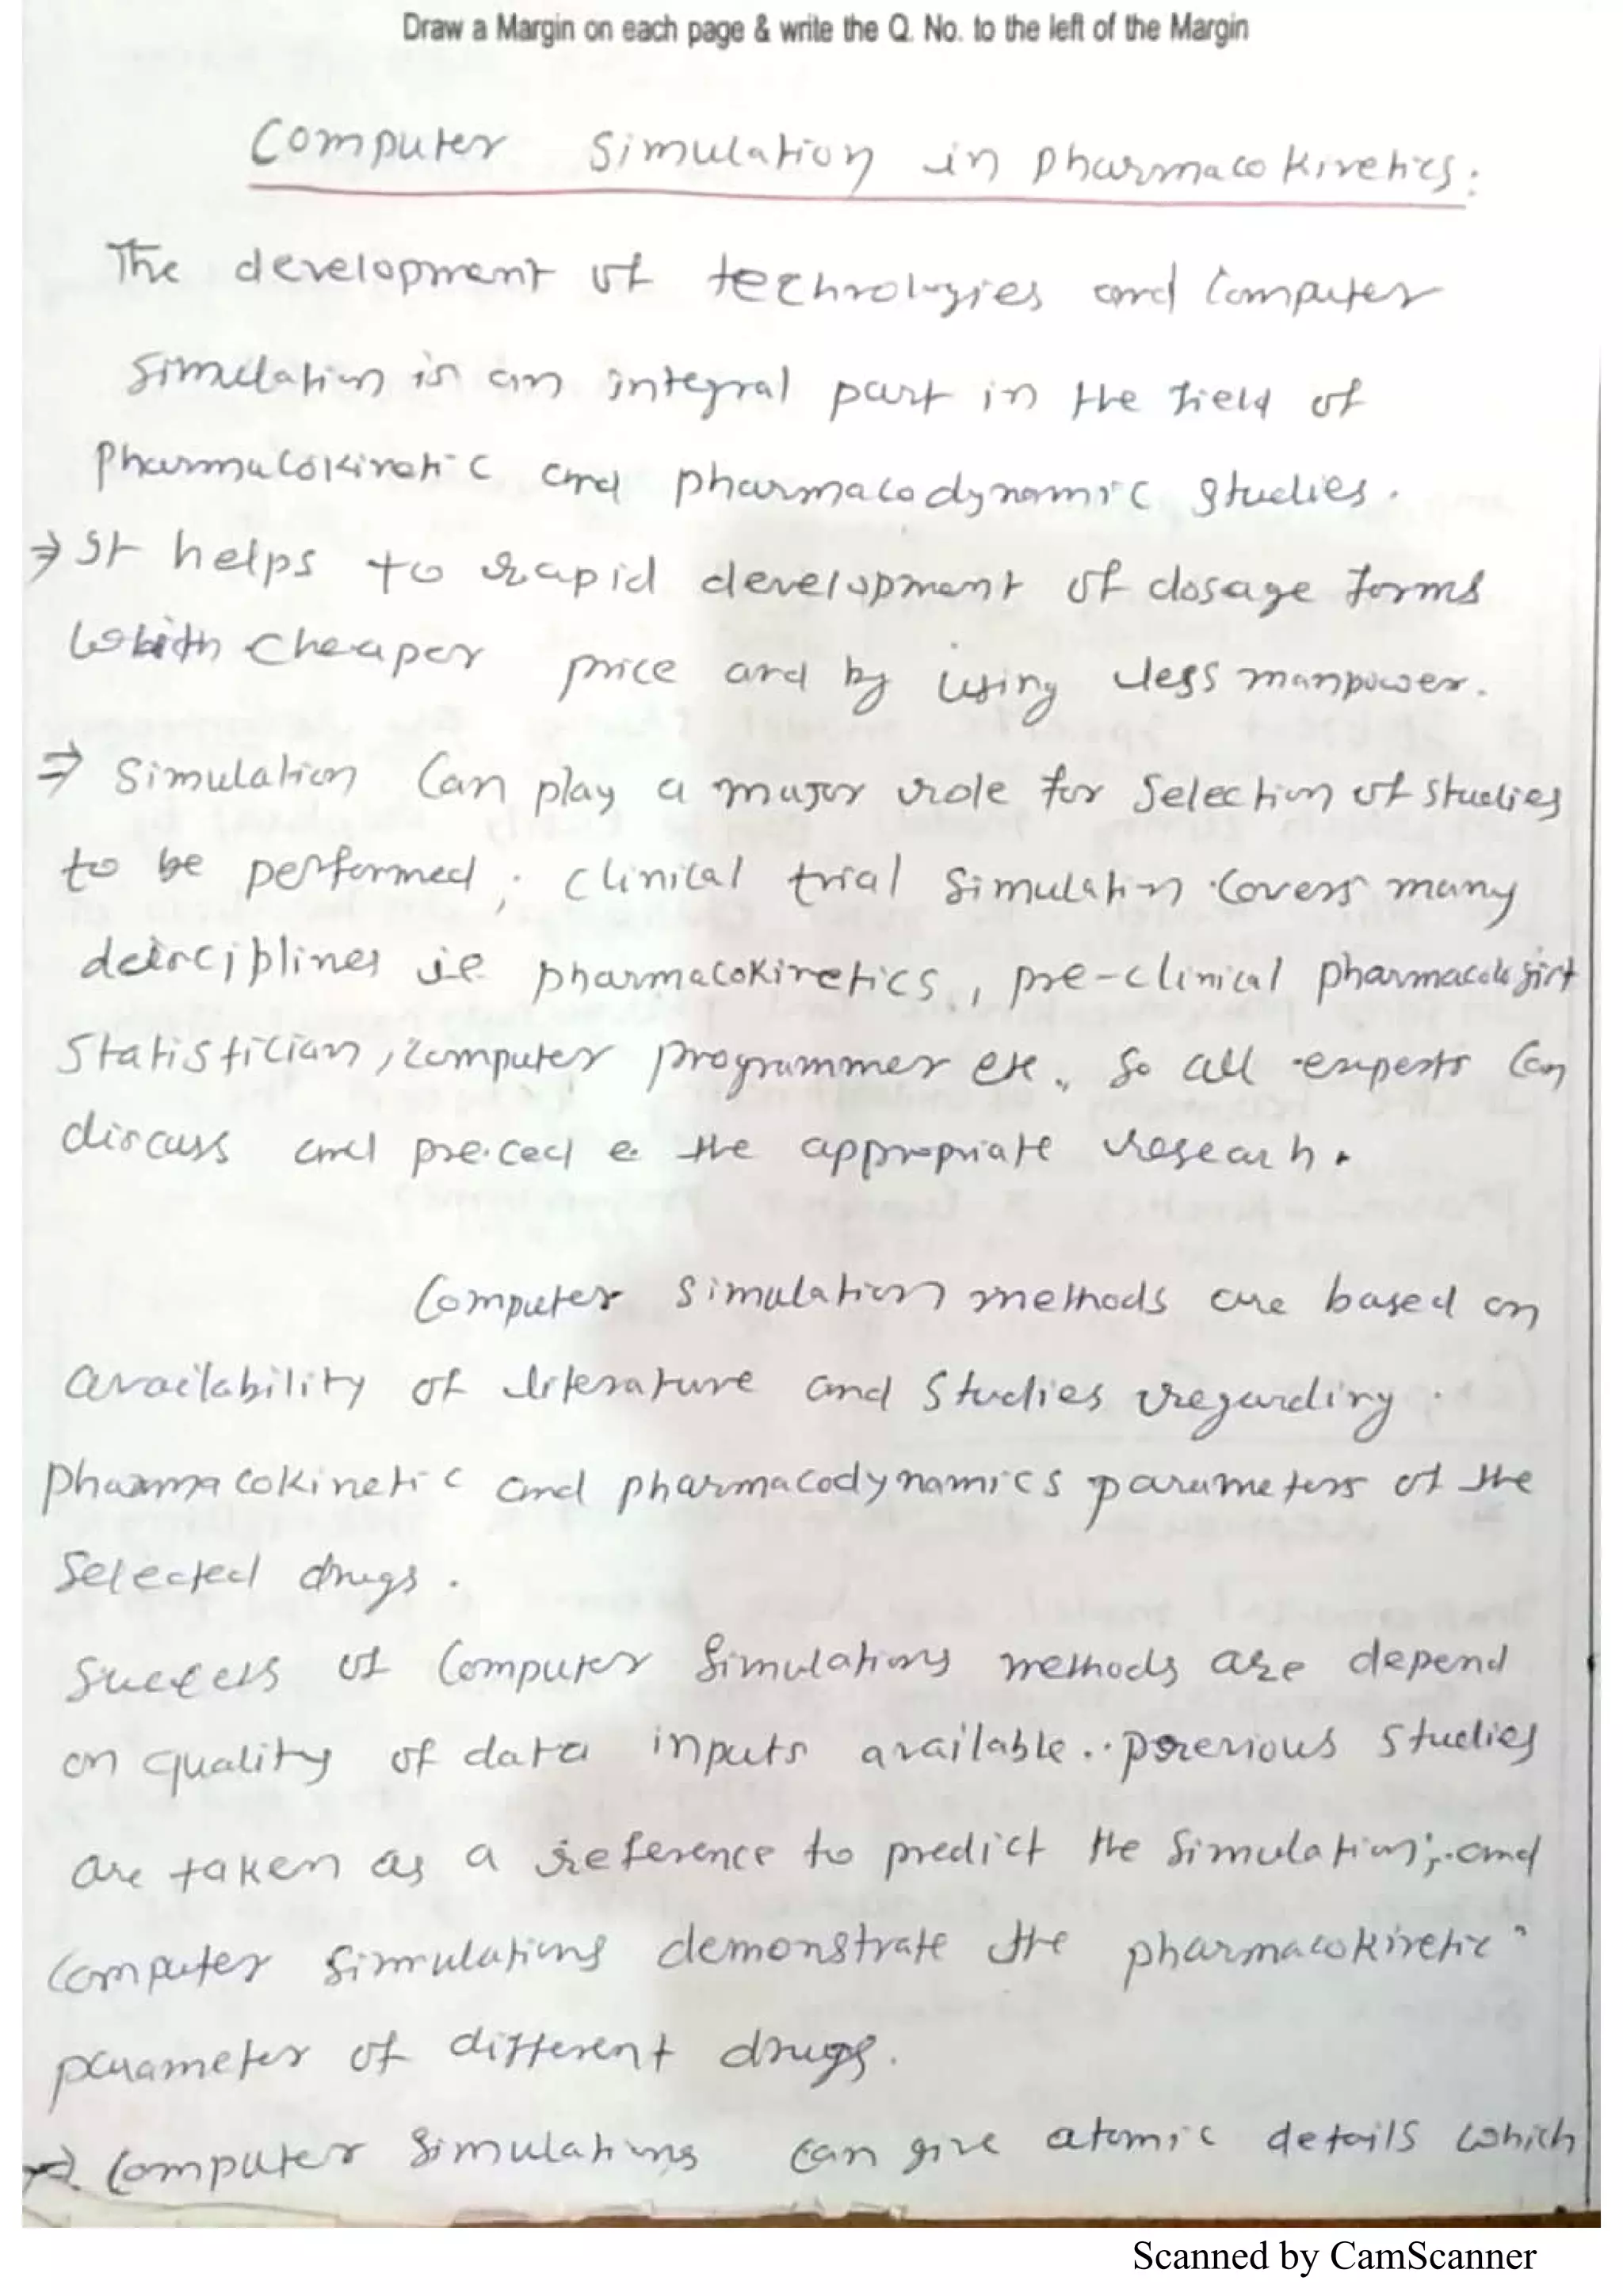 Draw a Margin on each page & write the Q. No. to the left of the Margin
Computer Simulation in pharmacokinetics:
The development of technologies and computer
simulation is an integral part in the field of
Pharmacokinetic and pharmacodynamic studies.
⇒ It helps to rapid development of dosage forms
with cheaper price and by using less manpower.
⇒ Simulation can play a major role for selection of studies
to be performed; clinical trial simulation covers many
deisciplines ie pharmacokinetics, pre-clinical pharmacologist
Statistician, computer programmer etc., so all experts can
discuss and preceed e the appropriate research.
Computer simulation methods are based on
availability of literature and studies regarding
pharmacokinetic and pharmacodynamics parameters of the
selected drugs.
Success of computer simulations methods are depend
on quality of data inputs available. previous studies
are taken as a reference to predict the simulation; and
computer simulations demonstrate the pharmacokinetic
parameter of different drugs.
⇒ Computer simulations can give atomic details which
Scanned by CamScanner